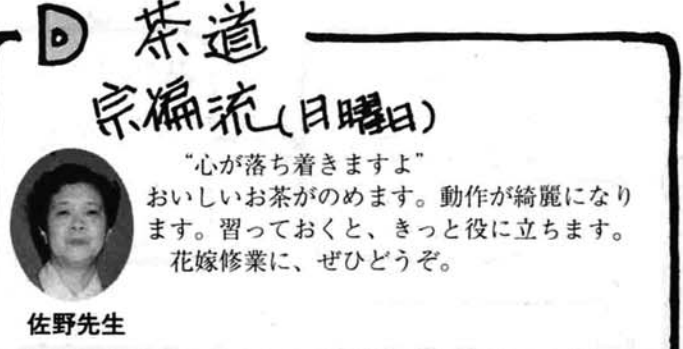 D 茶道
宗徧流(日曜日)
“心が落ち着きますよ”
おいしいお茶がのめます。動作が綺麗になり
ます。習っておくと、きっと役に立ちます。
花嫁修業に、ぜひどうぞ。
佐野先生